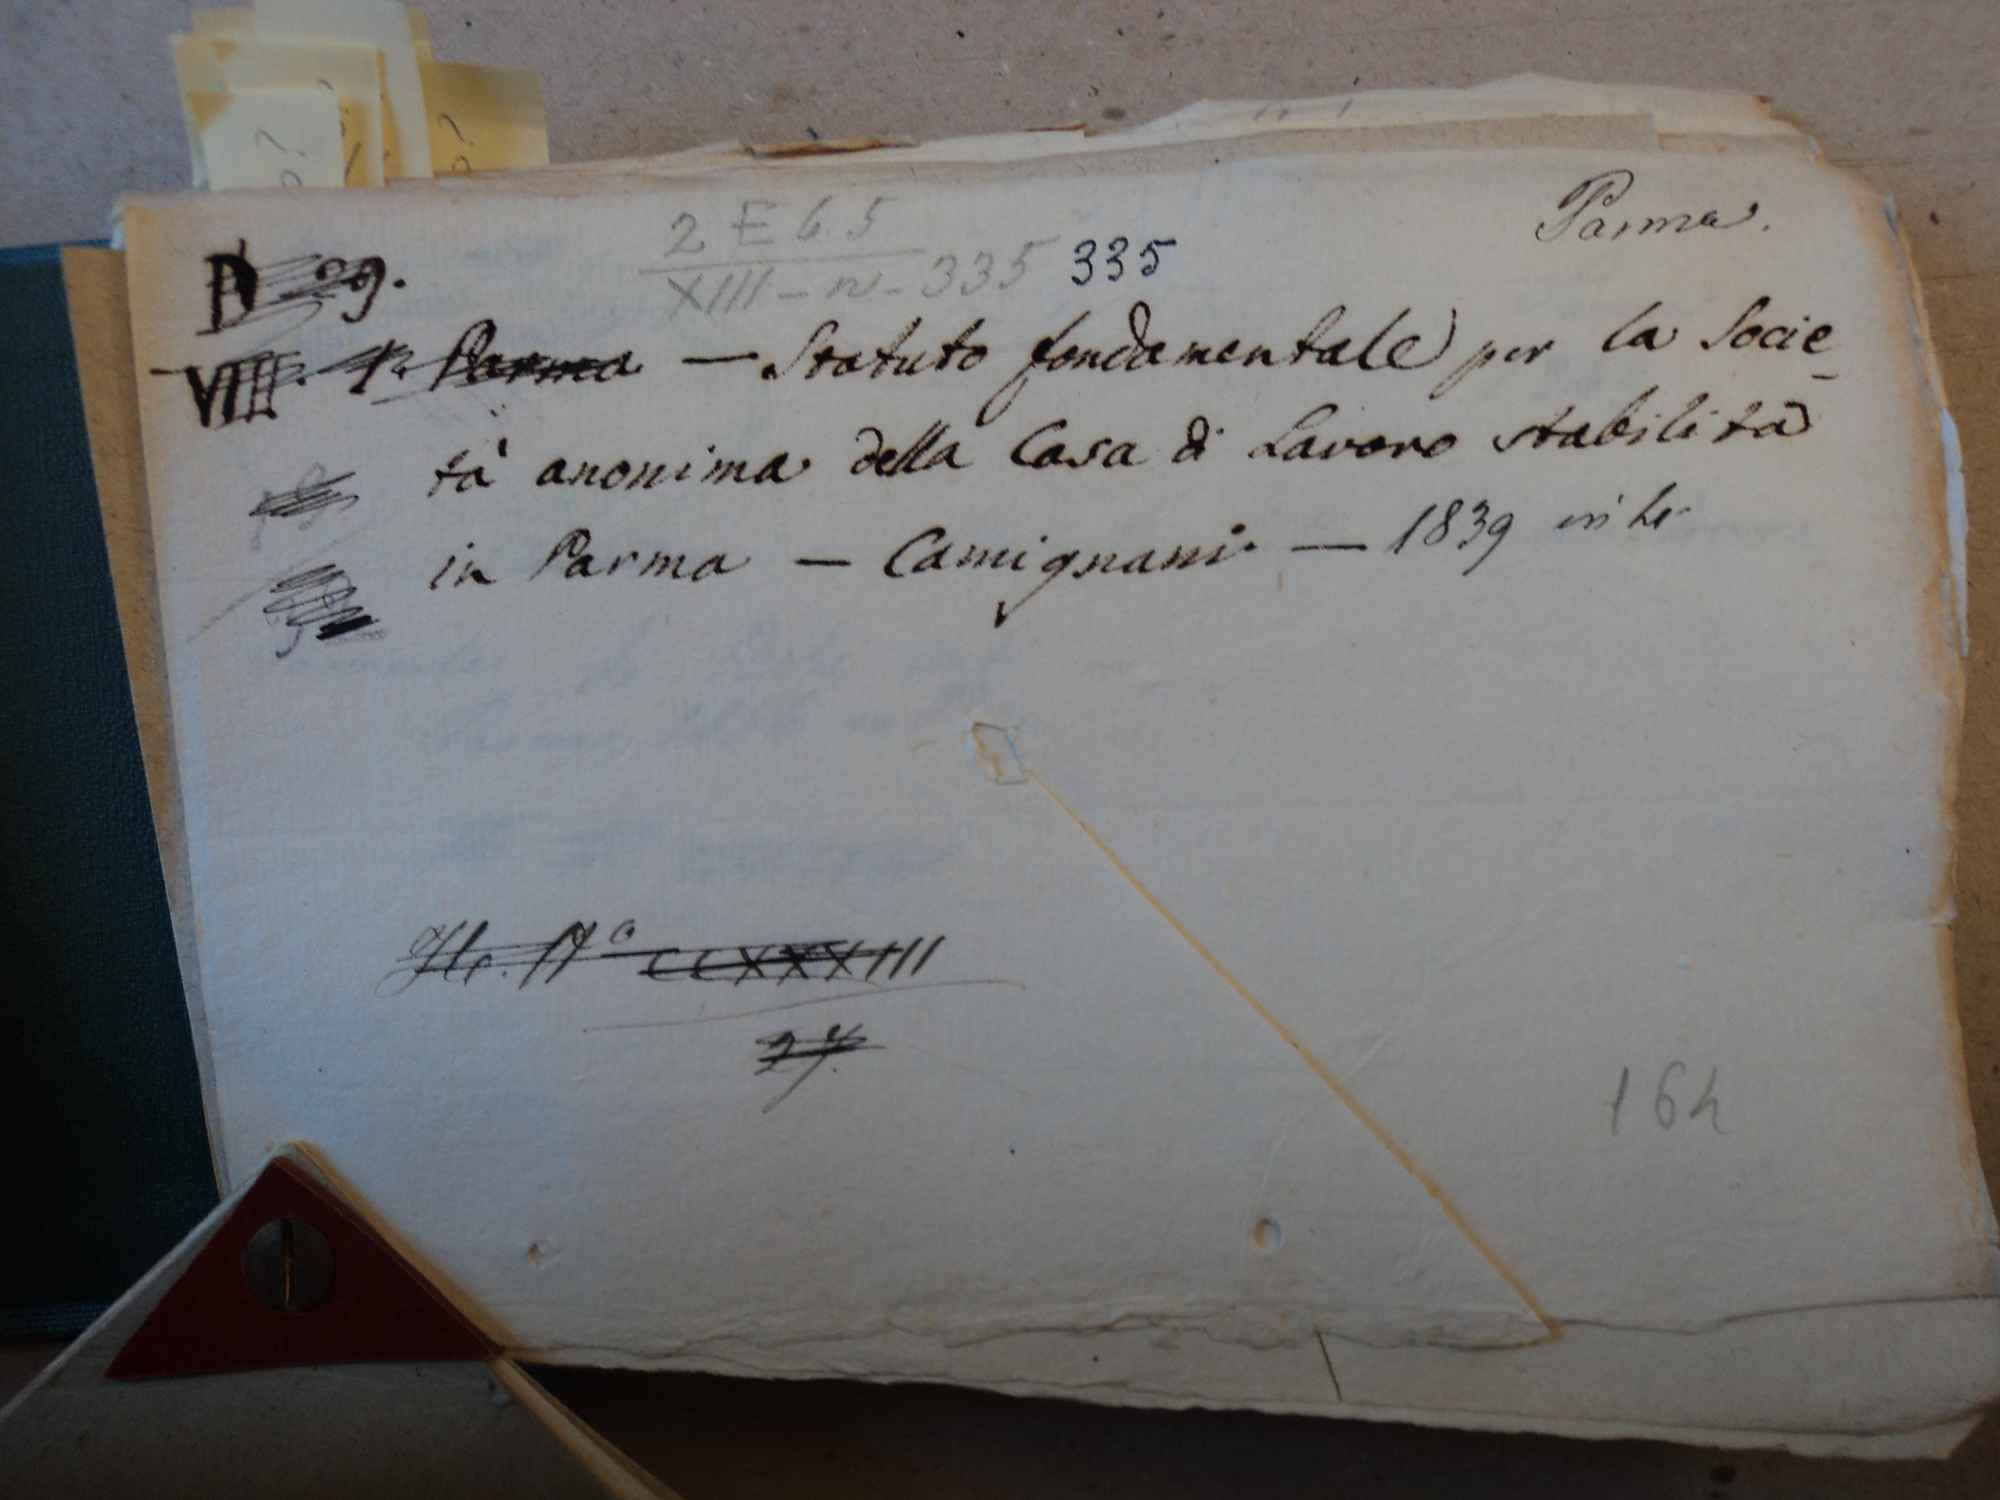 Parma.
2 E 6.5
XIII - n - 335 335
D 29.
VIII. 1. Parma — Statuto fondamentale per la Socie-
tà anonima della Casa di Lavoro stabilita
in Parma — Carmignani — 1839 in
N° CCXXXIII
27.
164